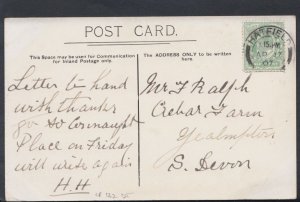 POST CARD.
This Space may be used for Communication
for Inland Postage only.
The ADDRESS ONLY to be written
here.
HATFIELD
AP
07
Letter to hand
with thanks
go to Connaught
Place on Friday
will write again
H.H
Mr J Ralph
Crebar Farm
Yealmpton
S. Devon